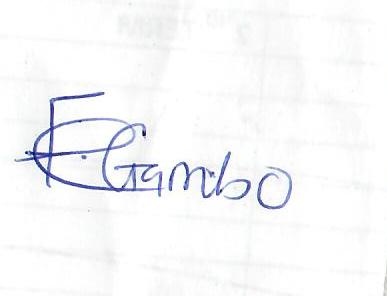 F. Gambo